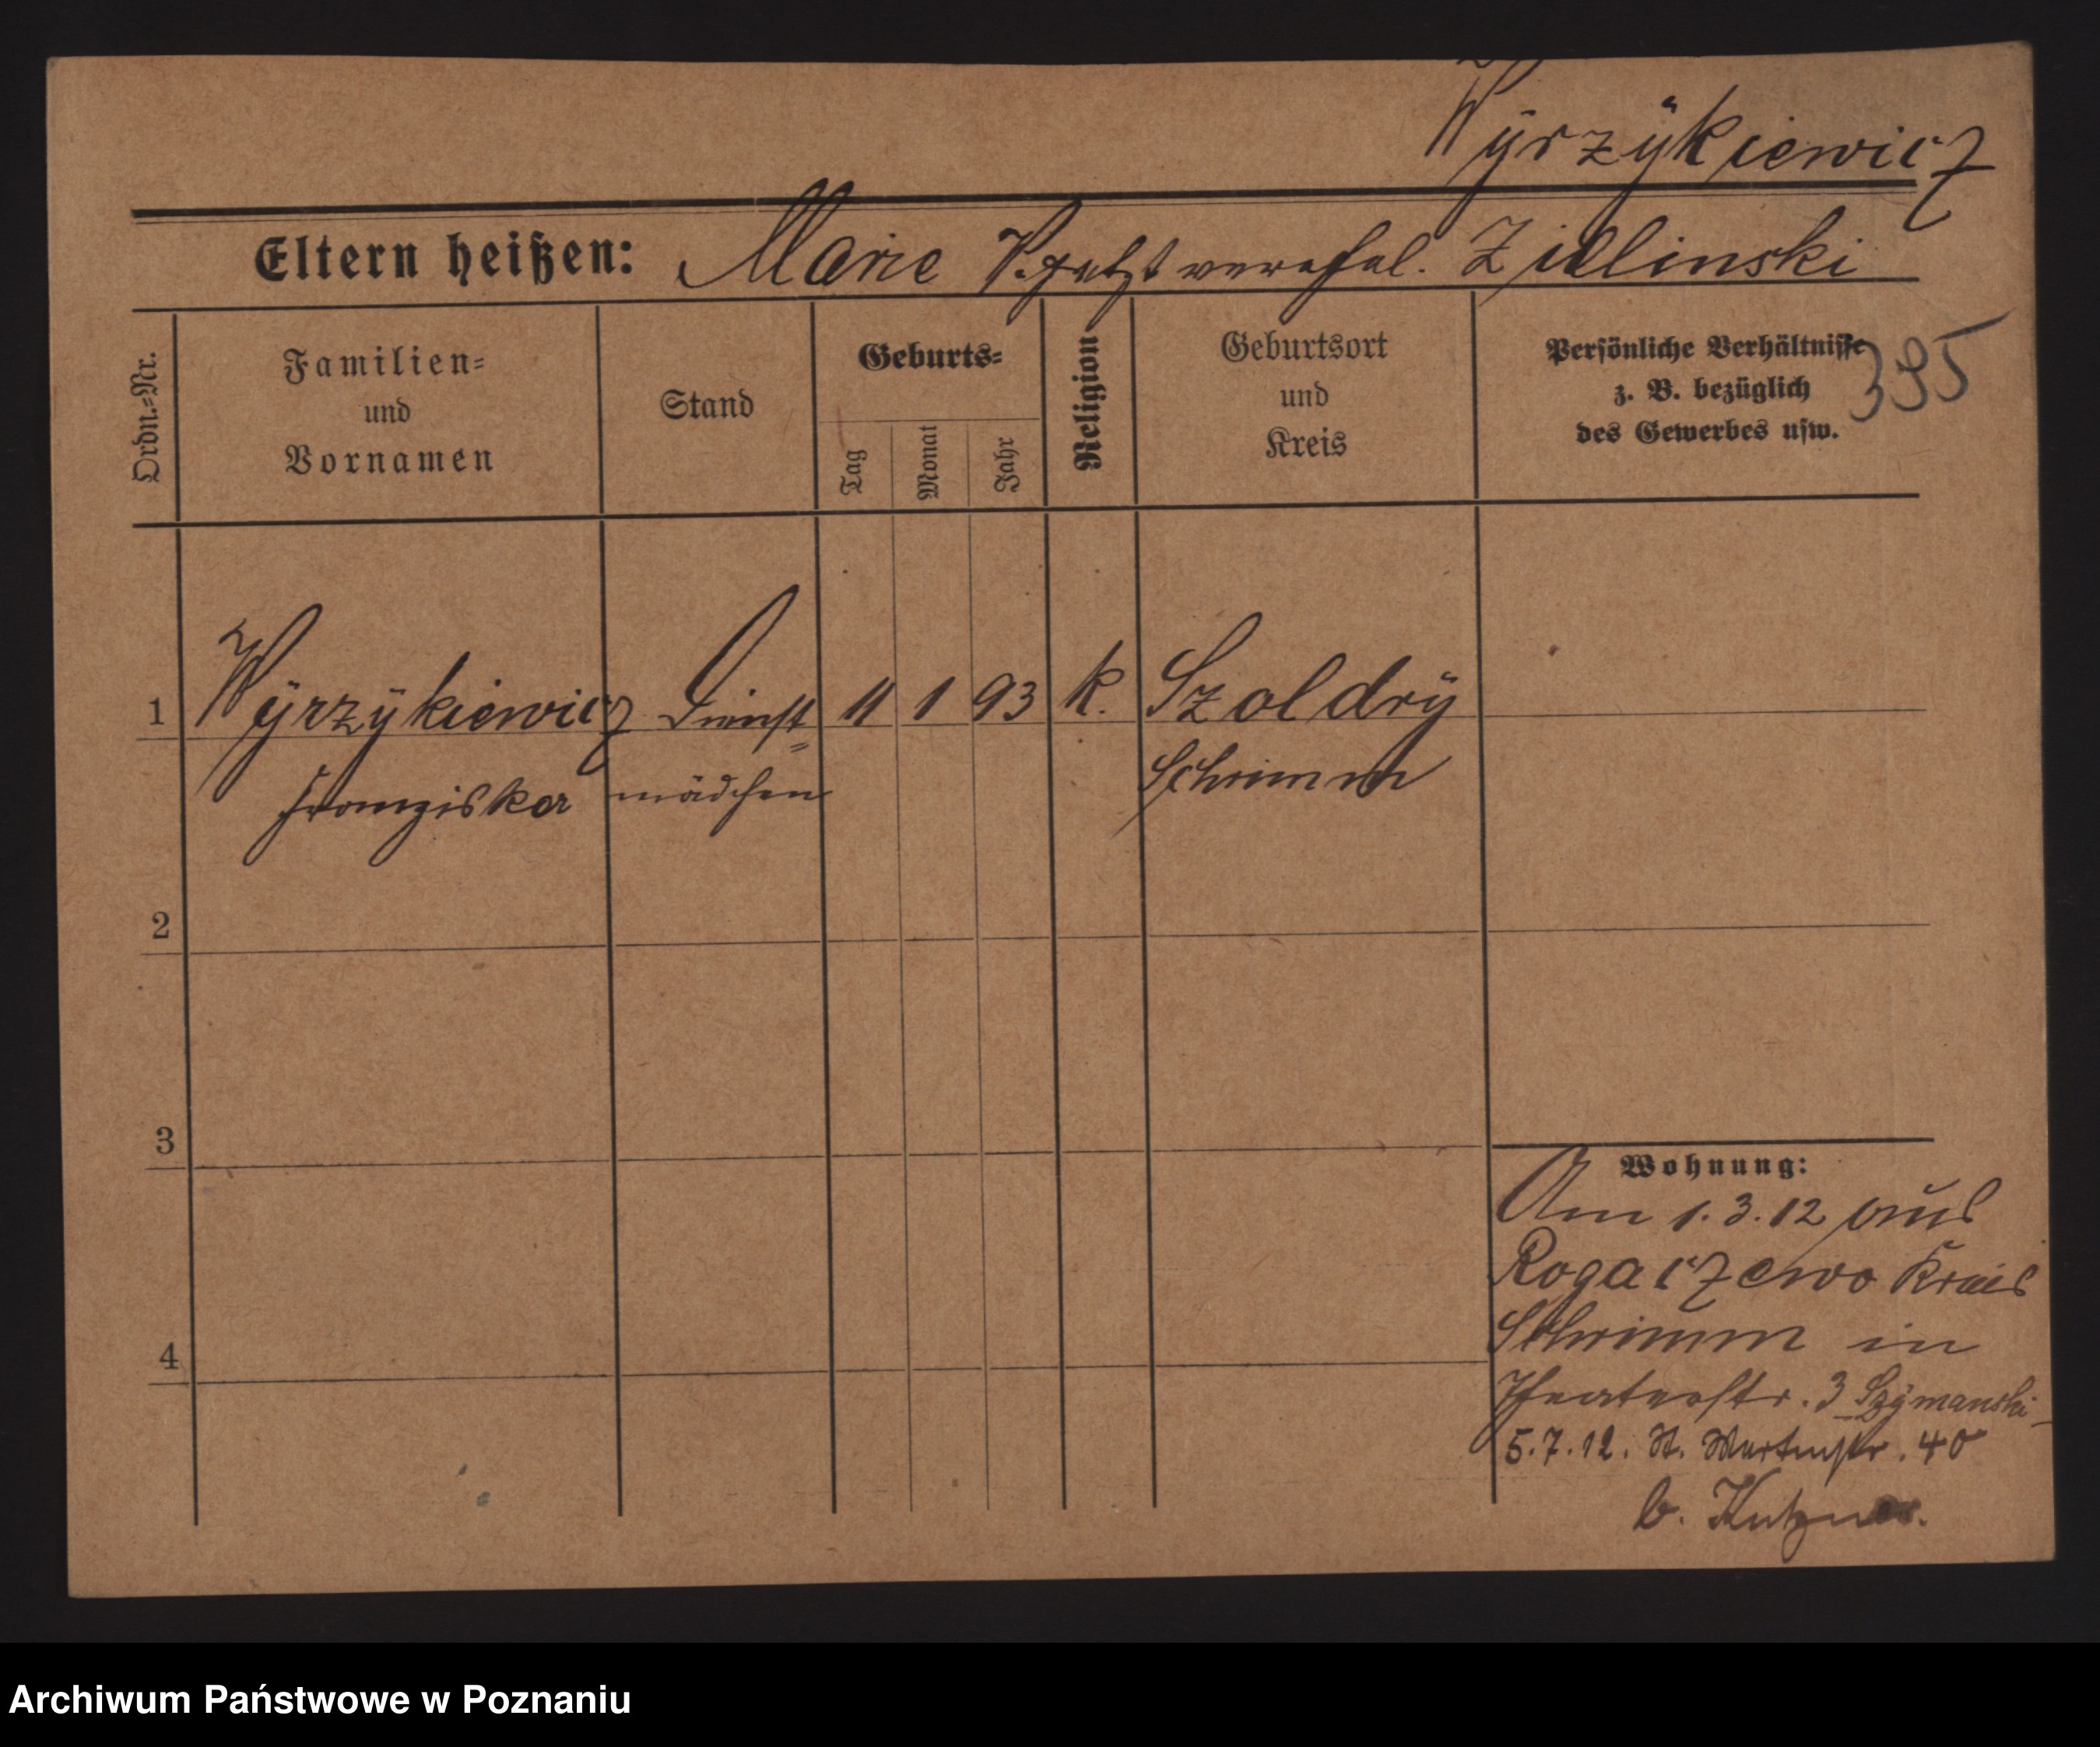 Wÿrzÿkiewicz
Eltern heißen: Marie W. jetzt verehel. Zielinski
Ordn.-Nr.
Familien-
und
Vornamen
Stand
Geburts-
Tag
Monat
Jahr
Religion
Geburtsort
und
Kreis
Persönliche Verhältnisse
z. B. bezüglich
des Gewerbes usw.
395
1 Wÿrzÿkiewicz Dienst= 11 1 93 k. Szoldrÿ
Franziska mädchen Schrimm
2
3
4
Wohnung:
Am 1.3.12 aus
Rogaczewo Kreis
Schrimm in
Theaterstr. 3 Szÿmanski
5.7.12. St. Martinstr. 40
b. Kutzner.
Archiwum Państwowe w Poznaniu